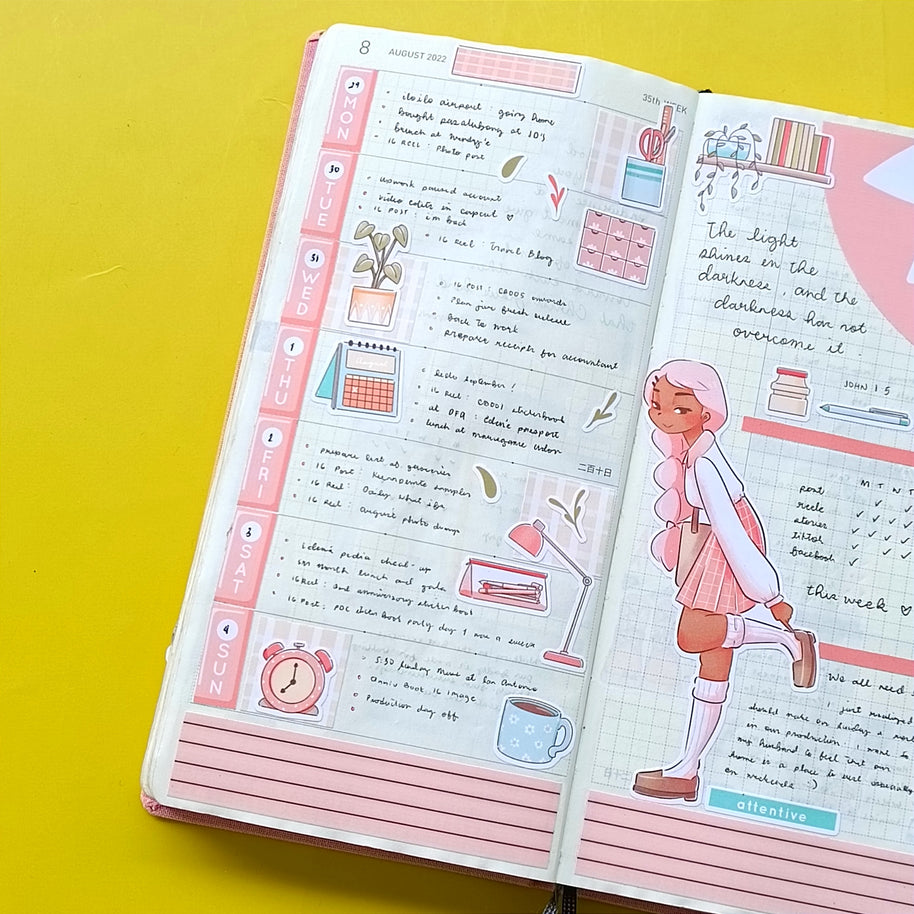 8 AUGUST 2022
35th WEEK
29 MON
iloilo airport : going home
bought pasalubong at
brunch at
16 REEL : photo post
30 TUE
upwork paused account
video edits in capcut ♡
16 POST : i'm back
16 Reel : Travel Blog
31 WED
16 POST : onwards
Plan jar fresh release
Back to work
prepare receipts for accountant
1 THU
August
hello september !
16 Reel : sticker book
at DFA : passport
lunch at
二百十日
2 FRI
prepare list of groceries
16 Post : samples
16 Reel : Daily what if's
16 Reel : August photo dump
3 SAT
pedia check-up
month lunch and
16 Reel : 2nd anniversary sticker book
16 Post : sticker book party day 1 was a success
4 SUN
5:30 Sunday Mass at San Antonio
Anniv Book 16 image
Production day off
The light
shines in the
darkness , and the
darkness has not
overcome it .
JOHN 1 5
M T W T
post
reels
stories
tiktok
facebook
this week ♡
We all need
I just realized
should make on Sunday a
in our production . I want
my husband to feel that our
home is a place to rest especially
on weekends :)
attentive